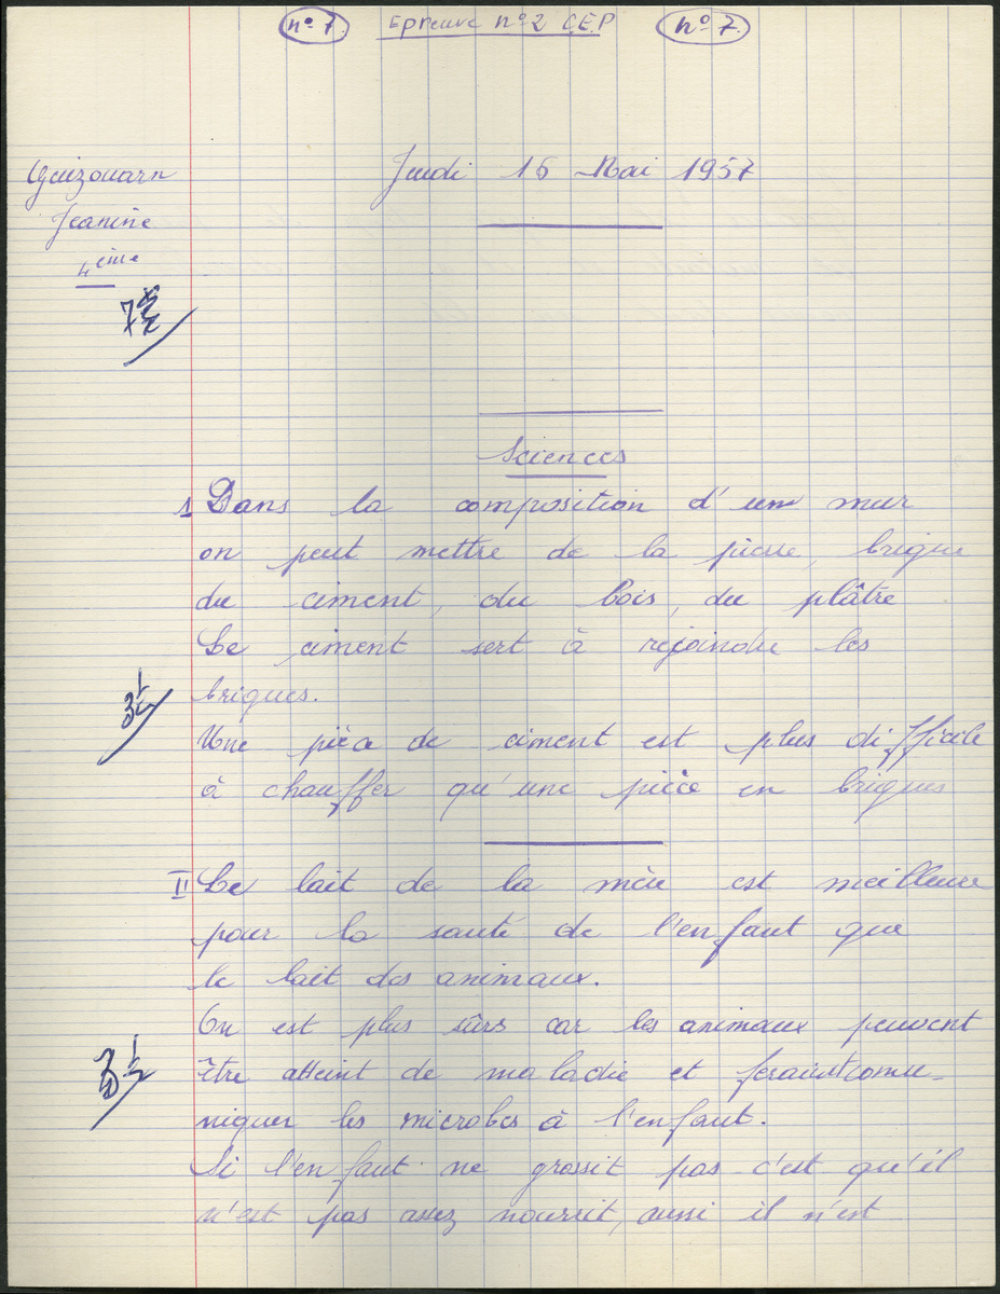 n° 7. Epreuve n° 2 C.E.P n° 7.
Guizouarn
Jeanine
4ème
Jeudi 16 Mai 1957
Sciences
1 Dans la composition d'un mur
on peut mettre de la pierre, brique
du ciment, du bois, du plâtre
Le ciment sert à rejoindre les
briques.
3½
Une pièce de ciment est plus difficile
à chauffer qu'une pièce en briques
II Le lait de la mère est meilleure
pour la santé de l'enfant que
le lait des animaux.
On est plus sûrs car les animaux peuvent
être atteint de maladie et feraient comu-
niquer les microbes à l'enfant.
Si l'enfant ne grossit pas c'est qu'il
n'est pas assez nourrit, aussi il n'est